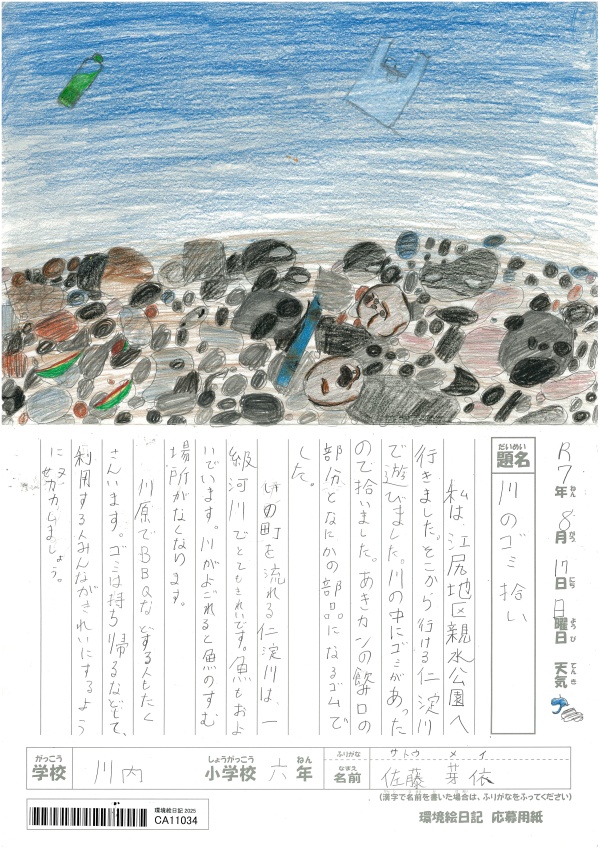 R7年 8月 17日 日曜日 天気
ねん がつ にち ようび てんき
だいめい
題名
川のゴミ拾い
私は、江尻地区親水公園へ
行きました。そこから行ける仁淀川
で遊びました。川の中にゴミがあった
ので拾いました。あきカンの飲み口の
部分となにかの部品になるゴムで
した。
いの町を流れる仁淀川は、一
級河川でとてもきれいです。魚もおよ
いでいます。川がよごれると魚のすむ
場所がなくなります。
川原でBBQなどする人もたく
さんいます。ゴミは持ち帰るなどして、
利用する人みんながきれいにするよう
に
しましょう。
がっこう しょうがっこう ねん
学校 川内 小学校 六年
ふりがな サトウ メイ
なまえ
名前 佐藤 芽依
(漢字で名前を書いた場合は、ふりがなをふってください)
環境絵日記 2025
CA11034
環境絵日記 応募用紙